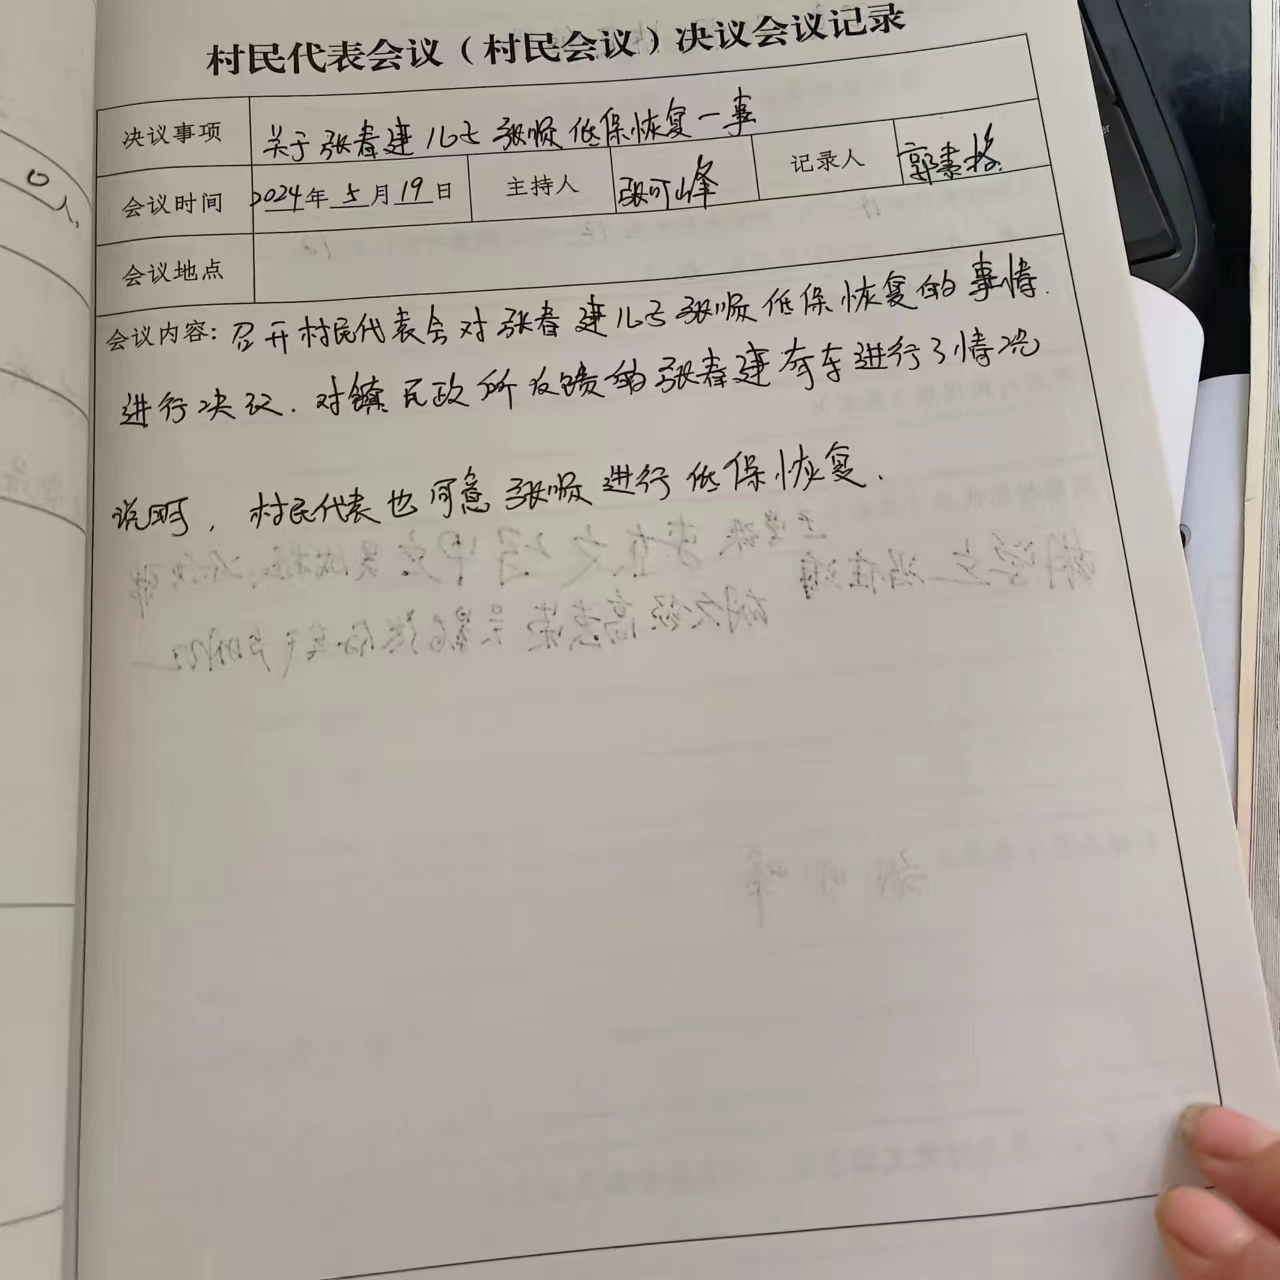 村民代表会议（村民会议）决议会议记录
决议事项 关于张春建儿子张顺低保恢复一事
会议时间 2024年5月19日 主持人 张可峰 记录人 郭素格
会议地点
会议内容：召开村民代表会对张春建儿子张顺低保恢复的事情.
进行决议.对镇民政所反馈的张春建奔车进行了情况
说明，村民代表也同意张顺进行低保恢复.
0人,